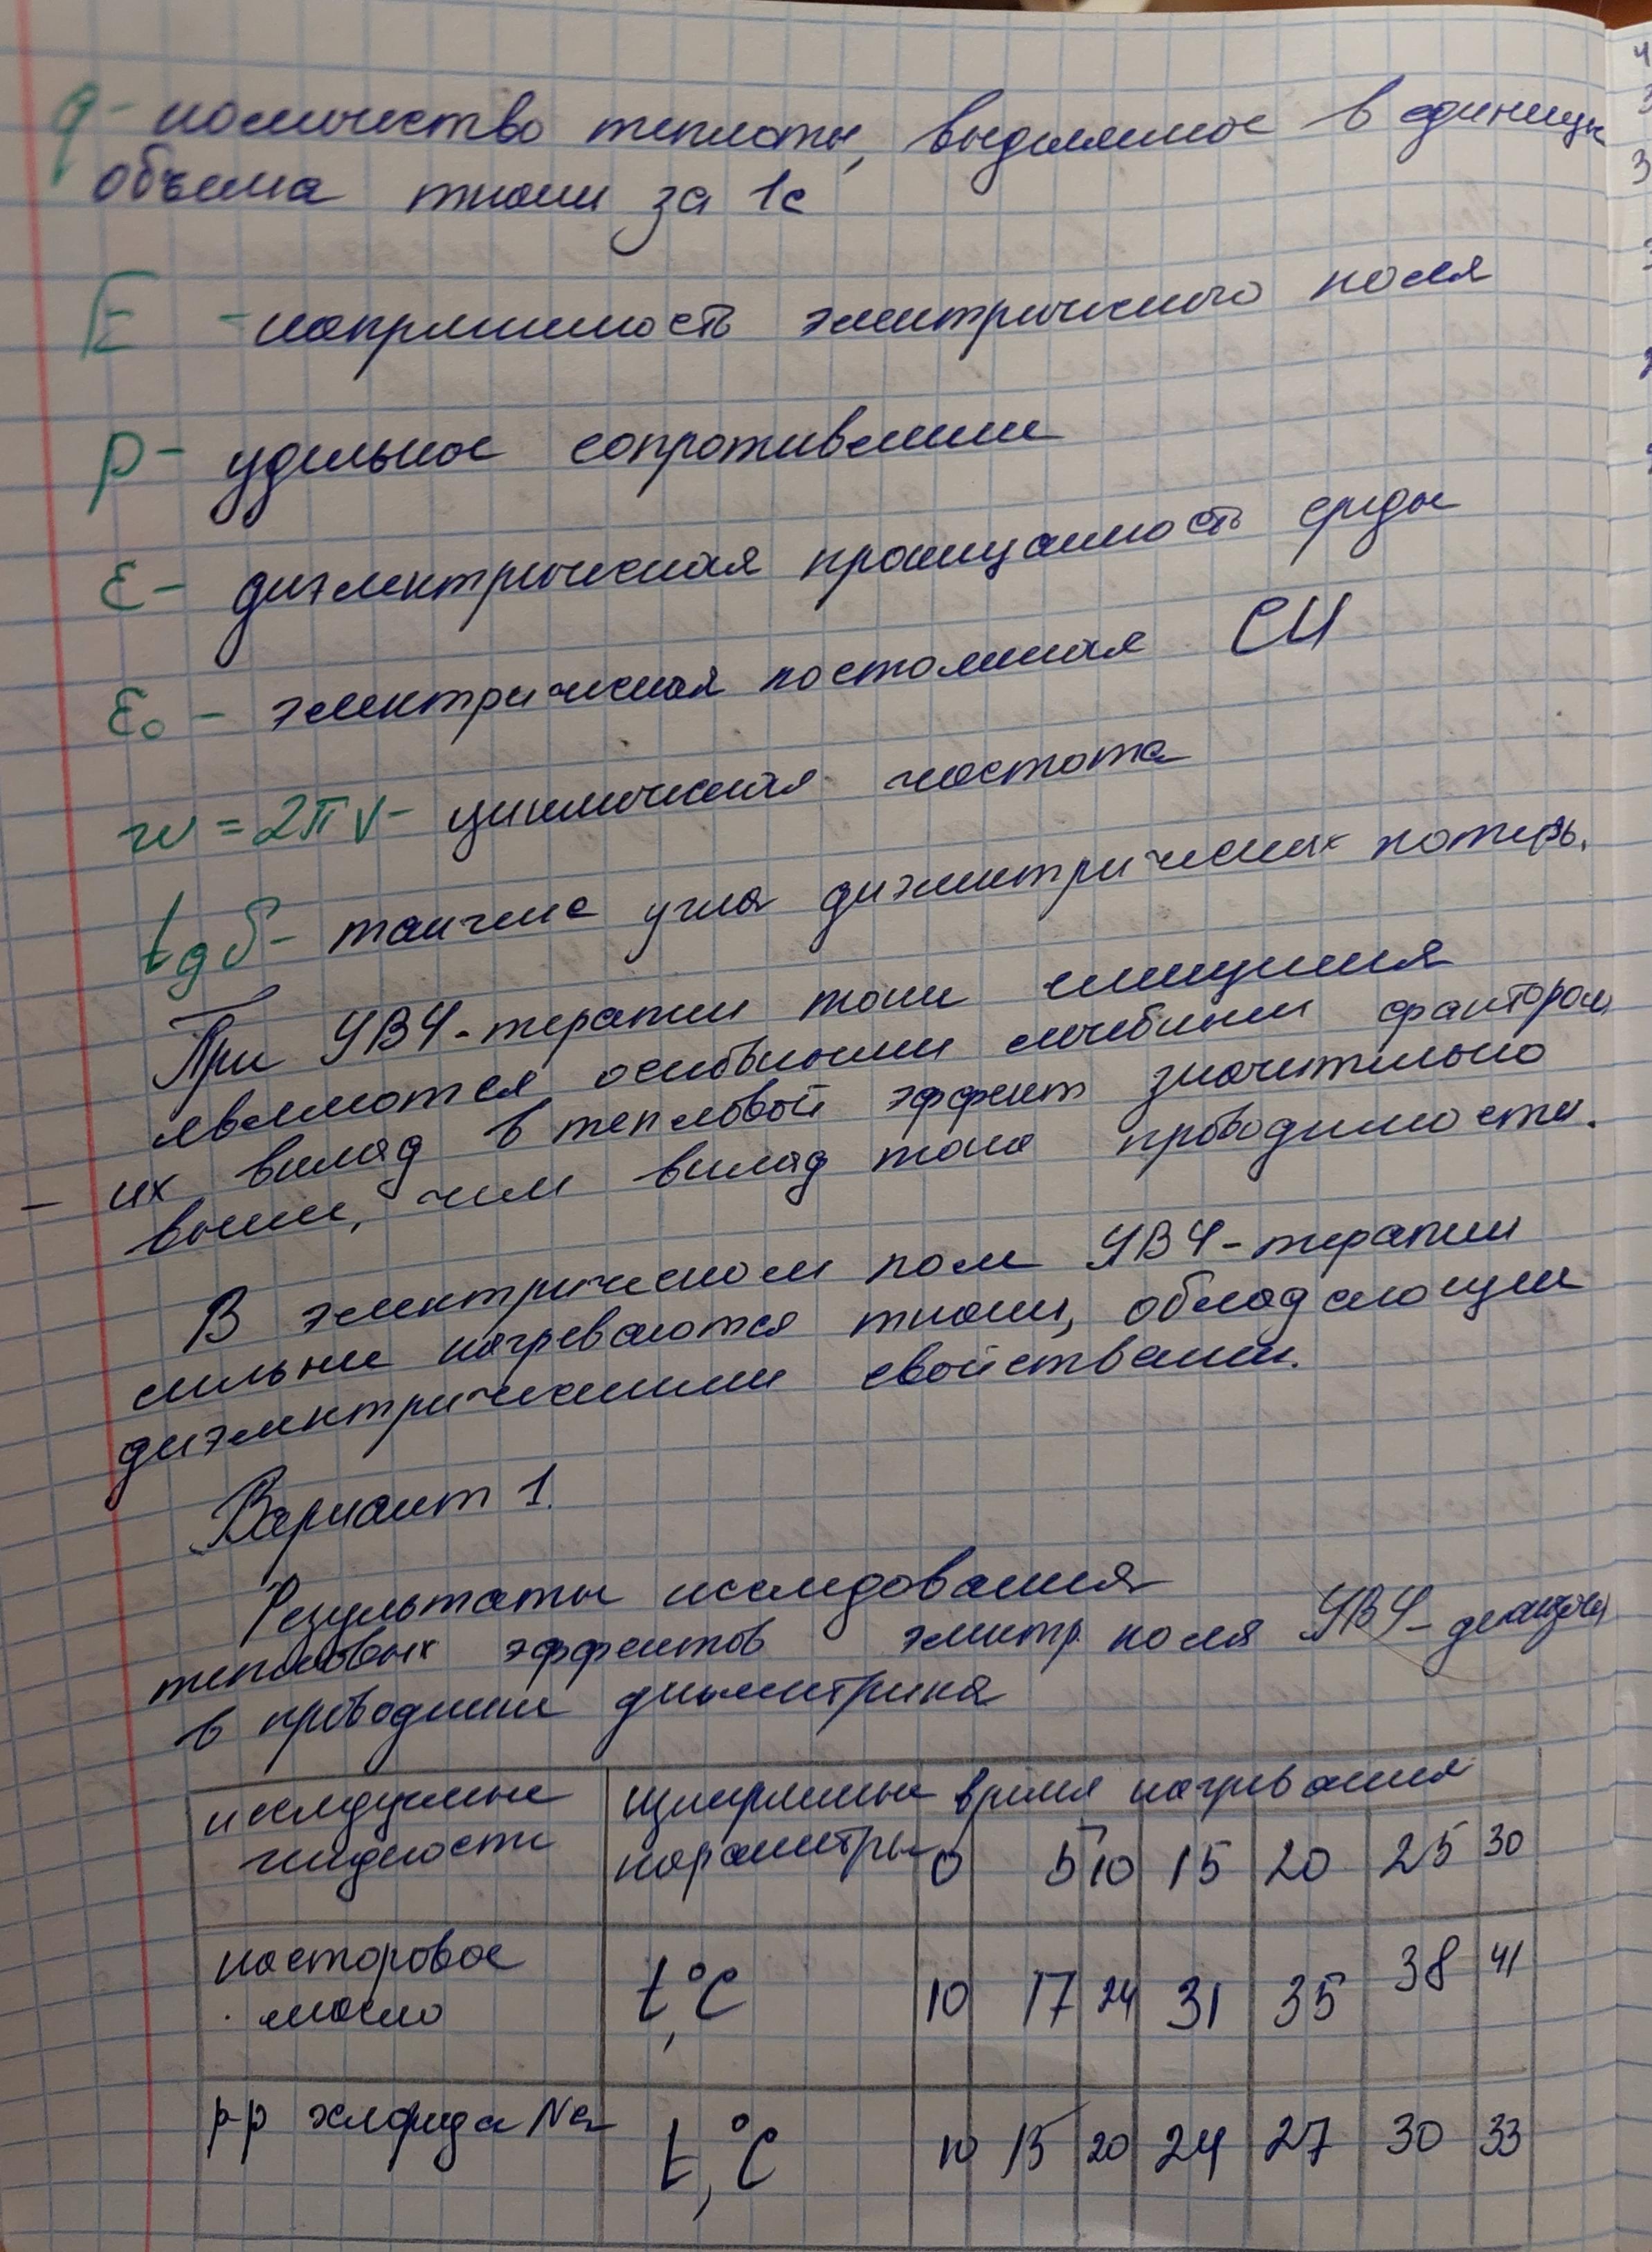 q- количество теплоты, выделяемое в единице
объёма ткани за 1с
E - напряжённость электрического поля
р- удельное сопротивление
ε- диэлектрическая проницаемость среды
ε₀ - электрическая постоянная СИ
w = 2πν- циклическая частота
tgδ- тангенс угла диэлектрических потерь.
При УВЧ-терапии токи смещения
являются основными лечебным фактором,
- их вклад в тепловой эффект значительно
выше, чем вклад тока проводимости.
В электрическом поле УВЧ-терапии
сильнее нагреваются ткани, обладающие
диэлектрическими свойствами.
Вариант 1.
Результаты исследования
тепловых эффектов электр. поля УВЧ-
в проводнике диэлектрика
исследуемые измеряемые время нагревания
жидкости параметры 0 5 10 15 20 25 30
касторовое
масло t,°C 10 17 24 31 35 38 41
р-р хлорида Na t,°C 10 15 20 24 27 30 33